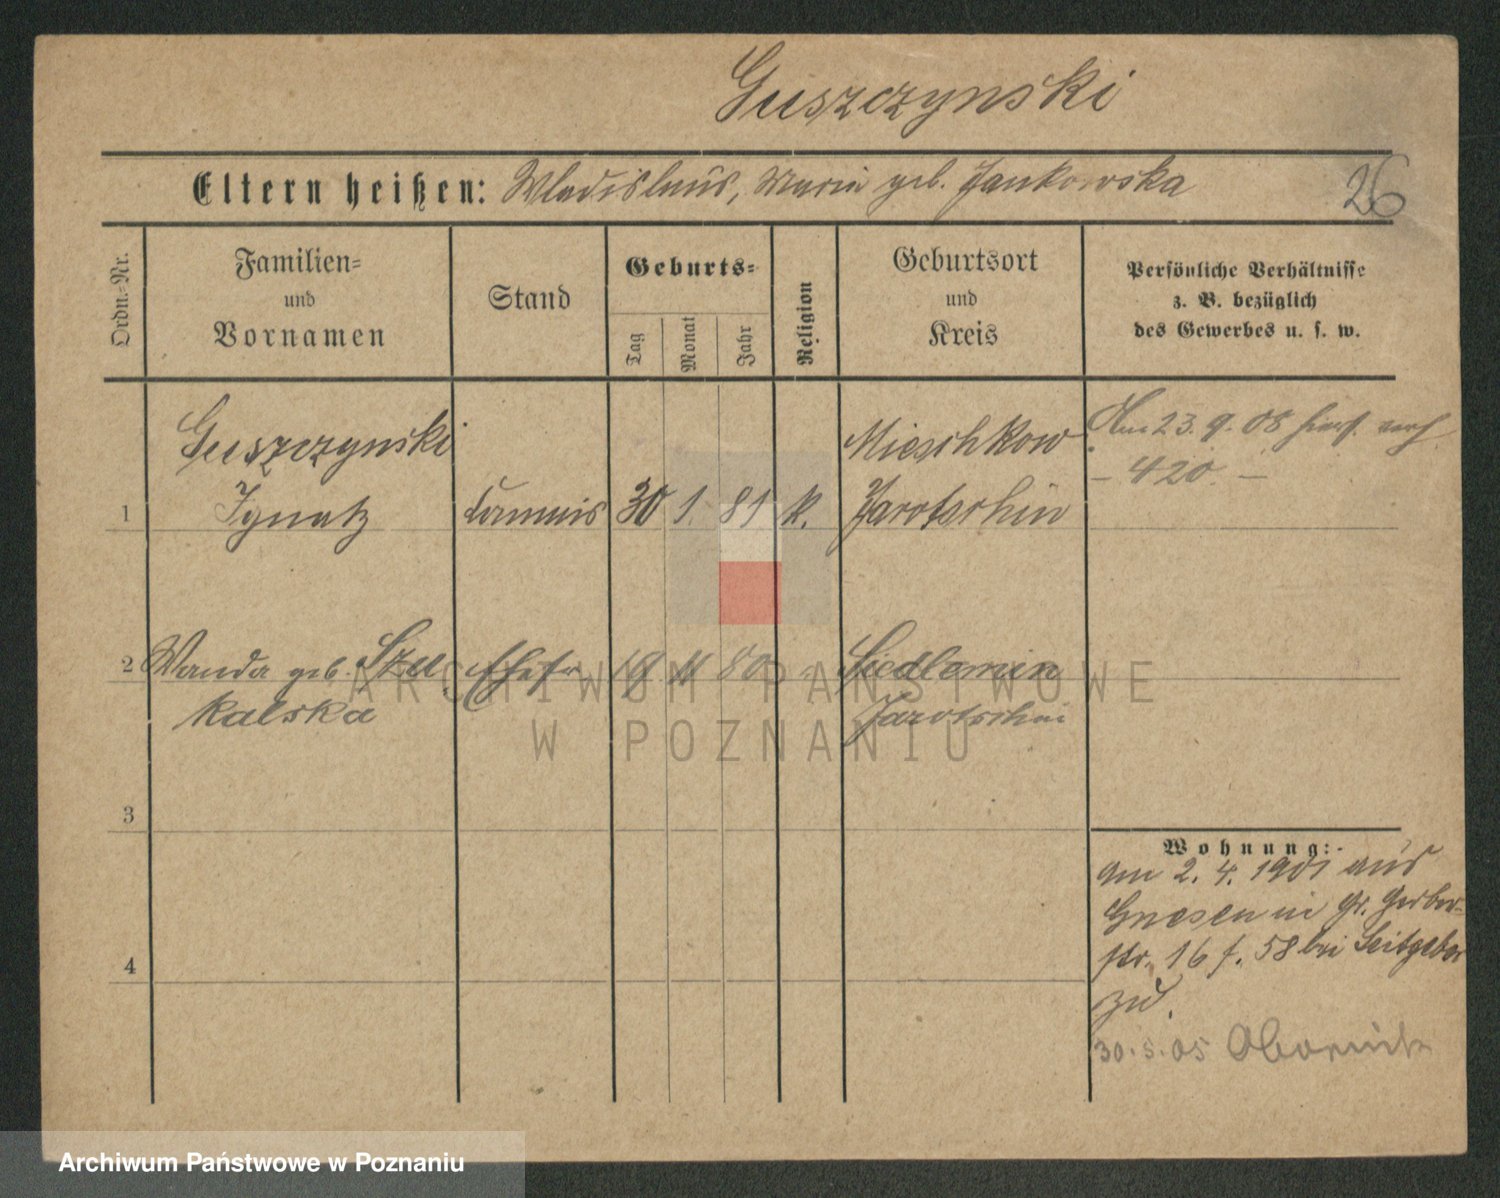 Guszczynski
Eltern heißen: Wladislaus, Maria geb. Jankowska
26
Ordn.-Nr.
Familien-
und
Vornamen
Stand
Geburts-
Tag
Monat
Jahr
Religion
Geburtsort
und
Kreis
Persönliche Verhältnisse
z. B. bezüglich
des Gewerbes u. s. w.
Guszczynski
1 Ignatz Commis 30 1. 81 k.
Mieschkow
Jarotschin
Am 23.9.08
- 420. -
2 Wanda geb. Szu-
kalska
Ehefr 19 11 80 "
Siedlemin
Jarotschin
3
4
Wohnung:
am 2.4.1901 aus
Gnesen in Gr. Gerber-
str. 16 f. 58 bei Leitgeber
zu.
30.5.05 Obornik
ARCHIWUM PAŃSTWOWE
W POZNANIU
Archiwum Państwowe w Poznaniu